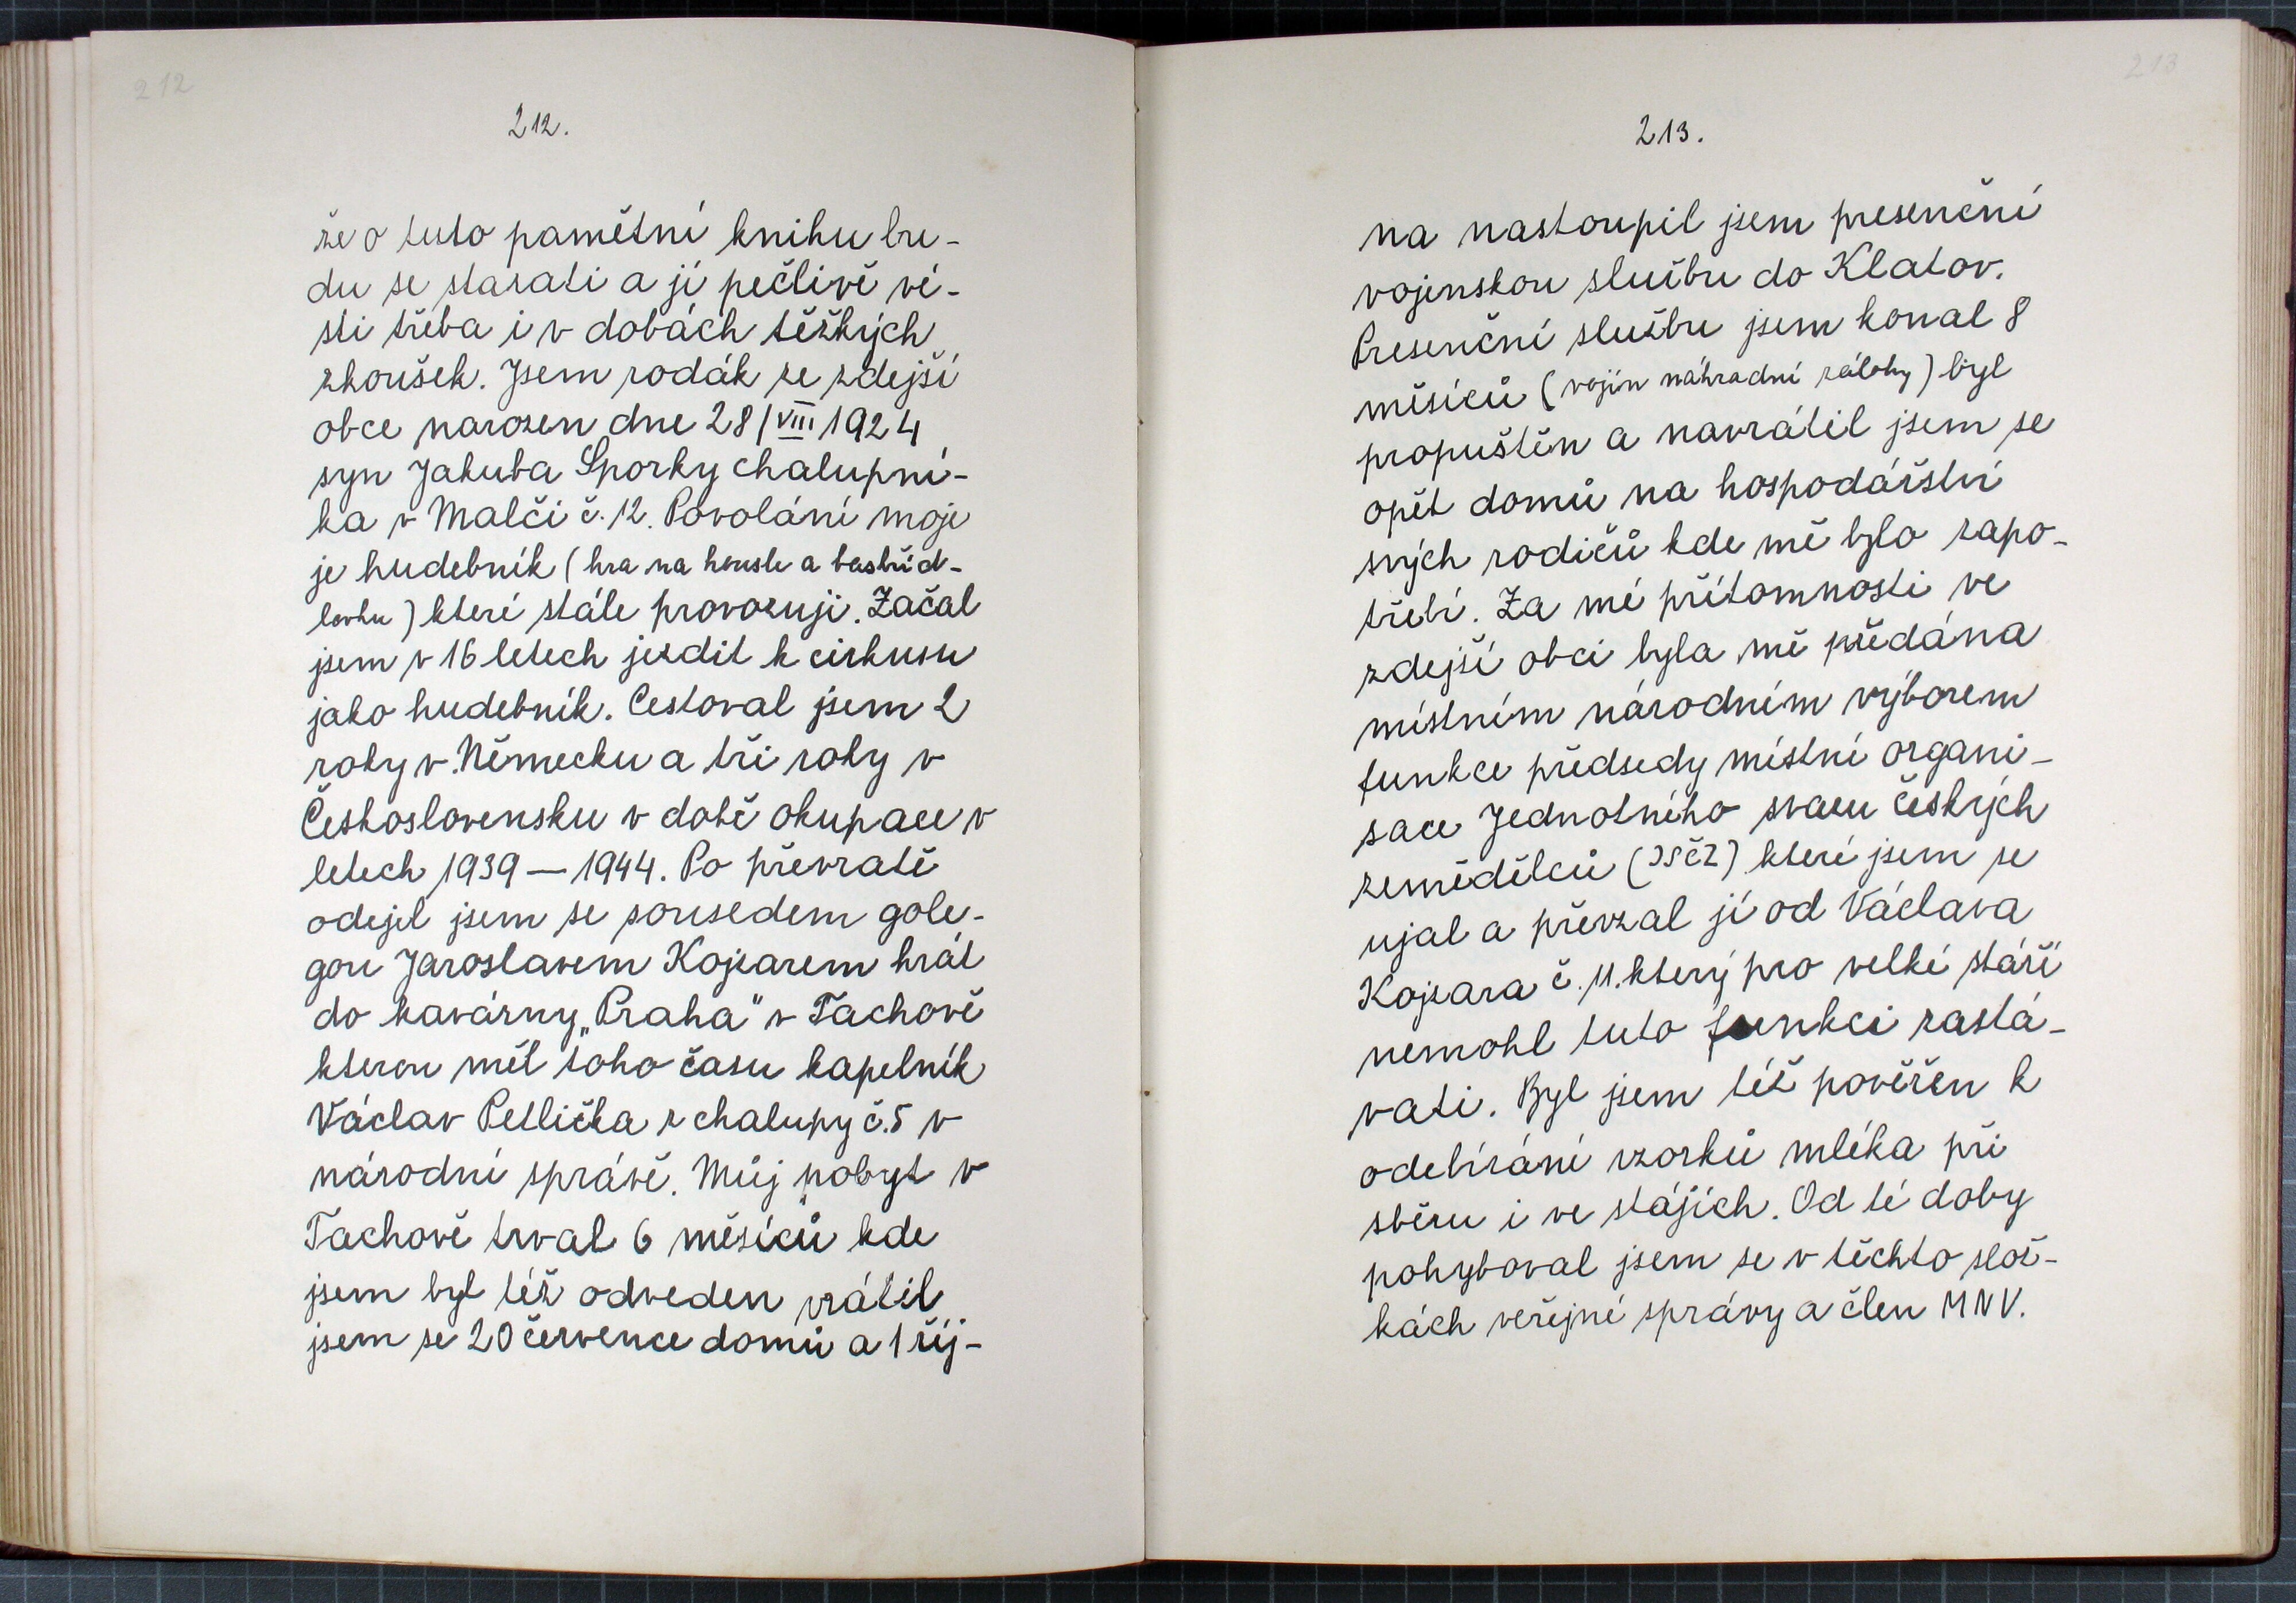 212
212.
že o tuto pamětní knihu bu-
du se starati a jí pečlivě vé-
sti třeba i v dobách těžkých
zkoušek. Jsem rodák ze zdejší
obce narozen dne 28/VIII 1924
syn Jakuba Sporky chalupní-
ka v Malči č. 12. Povolání moje
je hudebník (hra na housle a bastříd-
lovku) které stále provozuji. Začal
jsem v 16 letech jezdit k cirkusu
jako hudebník. Cestoval jsem 2
roky v. Německu a tři roky v
Československu v době okupace v
letech 1939 — 1944. Po převratě
odejel jsem se sousedem gole-
gou Jaroslavem Kojzarem hrát
do kavárny „Praha" v Tachově
kterou měl toho času kapelník
Václav Petlička z chalupy č. 5 v
národní správě. Můj pobyt v
Tachově trval 6 měsíců kde
jsem byl též odveden vrátil
jsem se 20 července domů a 1 říj-
213
213.
na nastoupil jsem presenční
vojenskou službu do Klatov.
Presenční službu jsem konal 8
měsíců (vojín náhradní zálohy) byl
propuštěn a navrátil jsem se
opět domů na hospodářství
svých rodičů kde mě bylo zapo-
třebí. Za mé přítomnosti ve
zdejší obci byla mě předána
místním národním výborem
funkce předsedy místní organi-
sace Jednotného svazu českých
zemědělců (JSČZ) které jsem se
ujal a převzal jí od Václava
Kojzara č. 11. který pro velké stáří
nemohl tuto funkci zastá-
vati. Byl jsem též pověřen k
odebírání vzorků mléka při
sběru i ve stájích. Od té doby
pohyboval jsem se v těchto slož-
kách veřejné správy a člen MNV.